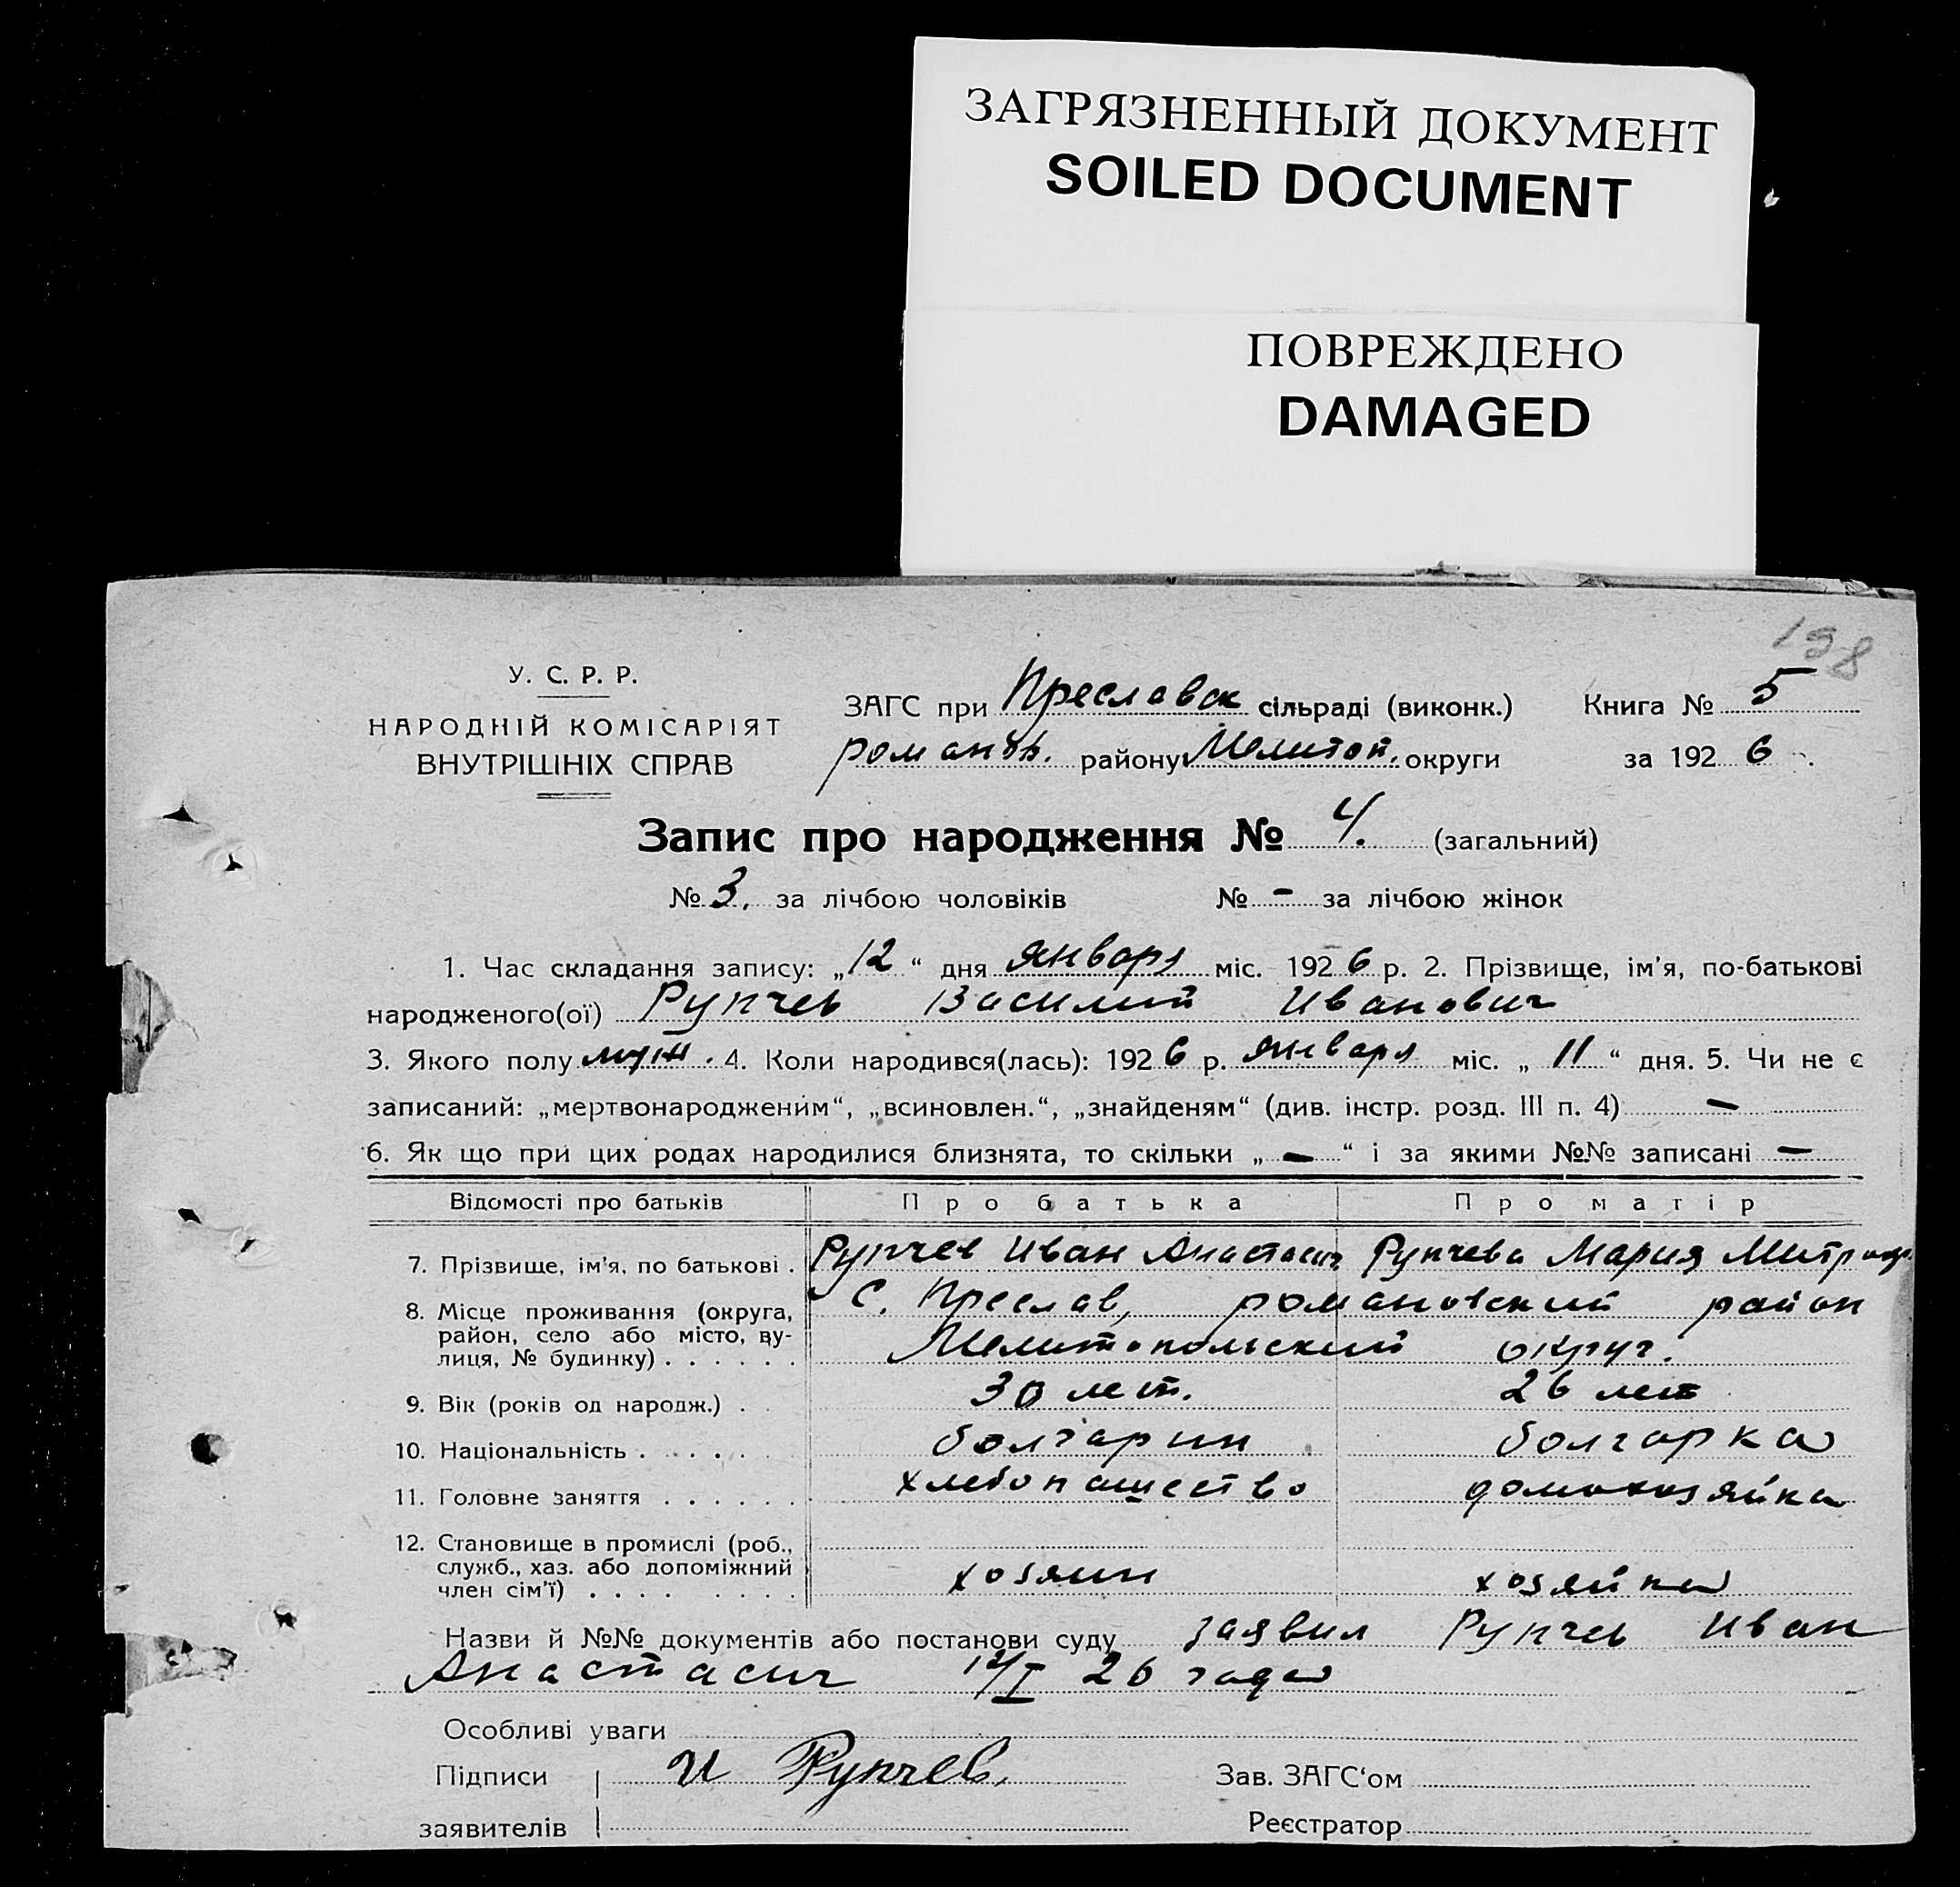 ЗАГРЯЗНЕННЫЙ ДОКУМЕНТ
SOILED DOCUMENT
ПОВРЕЖДЕНО
DAMAGED
158
У. С. Р. Р.
НАРОДНІЙ КОМІСАРІЯТ
ВНУТРІШНІХ СПРАВ
ЗАГС при Преславск сільраді (виконк.) Книга № 5
романов. району Мелитоп. округи за 1926
Запис про народження № 4. (загальний)
№ 3. за лічбою чоловіків № - за лічбою жінок
1. Час складання запису: „12“ дня января міс. 1926 р. 2. Прізвище, ім'я, по-батькові
народженого(ої) Рупчев Василий Иванович
3. Якого полу муж. 4. Коли народився(лась): 1926 р. января міс. „11“ дня. 5. Чи не є
записаний: „мертвонародженим“, „всиновлен.“, „знайденям“ (див. інстр. розд. III п. 4) –
6. Як що при цих родах народилися близнята, то скільки „–“ і за якими №№ записані –
Відомості про батьків Про батька Про матір
7. Прізвище, ім'я, по батькові . Рупчев Иван Анастасич Рупчева Мария Митроф.
8. Місце проживання (округа, С. Преслав, романовский район
район, село або місто, ву-
лиця, № будинку) . . . . . . Мелитопольский округ.
9. Вік (років од народж.) . . 30 лет. 26 лет
10. Національність . . . . . болгарин болгарка
11. Головне заняття . . . . . . хлебопашество домохозяйка
12. Становище в промислі (роб.,
служб., хаз. або допоміжний
член сім'ї) . . . . . . . . хозяин хозяйка
Назви й №№ документів або постанови суду заявил Рупчев Иван
Анастасич 12/I 26 года
Особливі уваги
Підписи И Рупчев. Зав. ЗАГС‘ом
заявителів Реєстратор